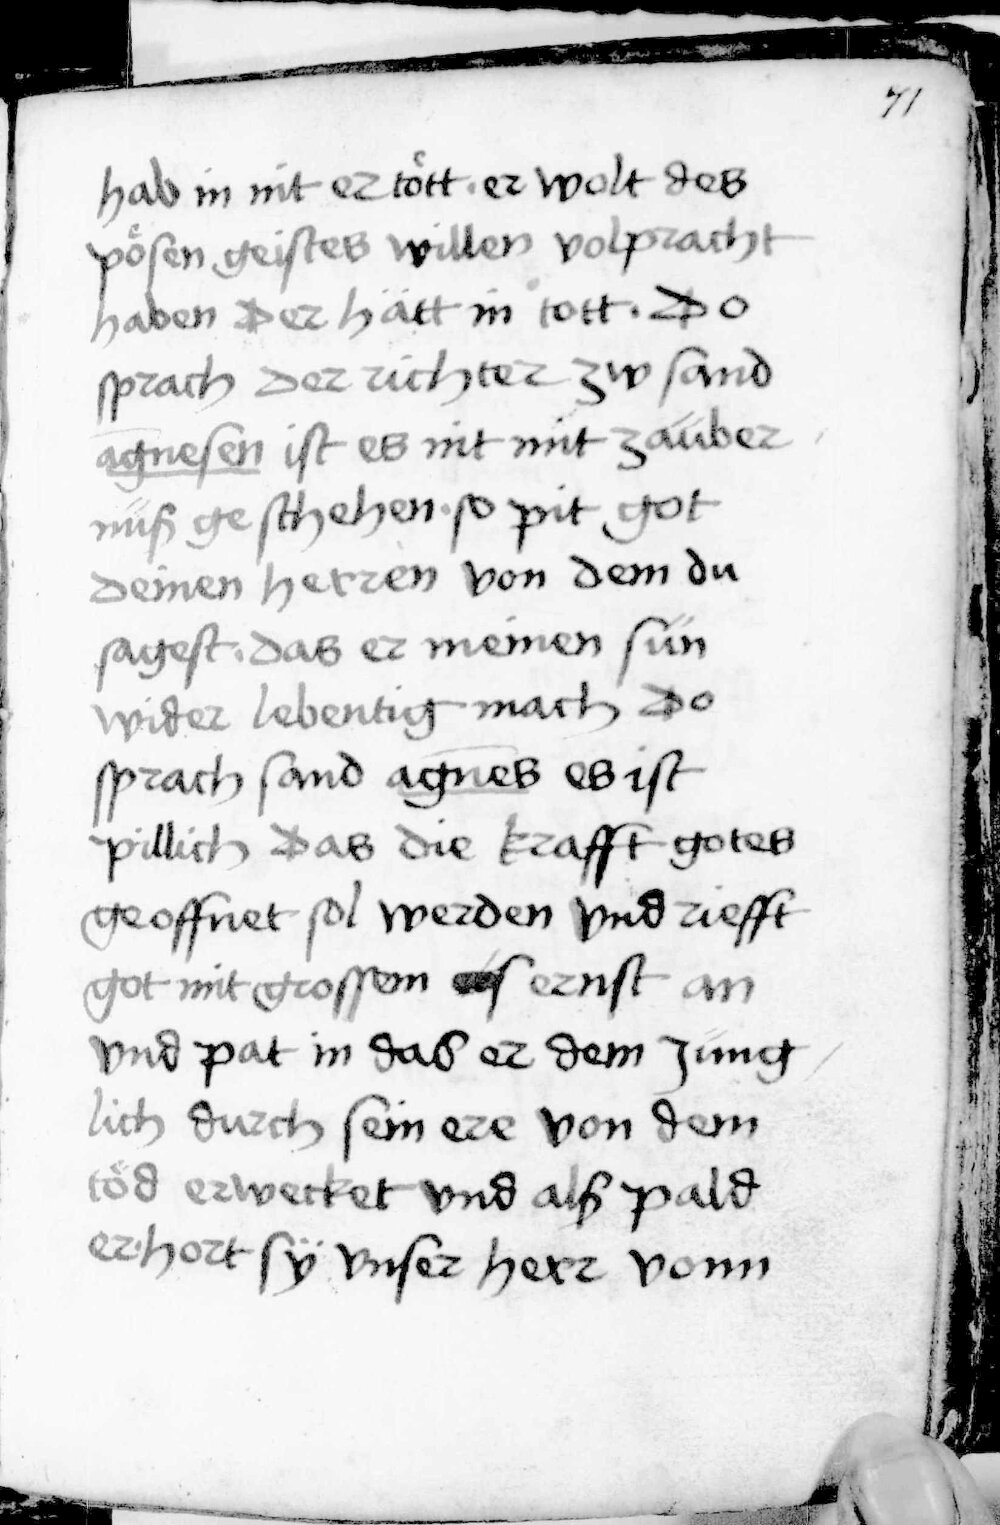 71
hab in nit er toͤtt · er wolt des
poͤsen geistes willen volpracht
haben Der hätt in tott · Do
sprach der richter zw sand
agnesen ist es nit mit zaüber
nüß ge schehen · so pit got
deinen herren von dem du
sagest · das er meinen sün
wider lebentig mach Do
sprach sand agnes es ist
pillich Das die krafft gotes
geoffnet sol werden vnd riefft
got mit grossem ernst an
vnd pat in das er dem Jüng
lich durch sein ere von dem
toͤd erwecket vnd alß pald
er·hort sÿ vnser herr vonn